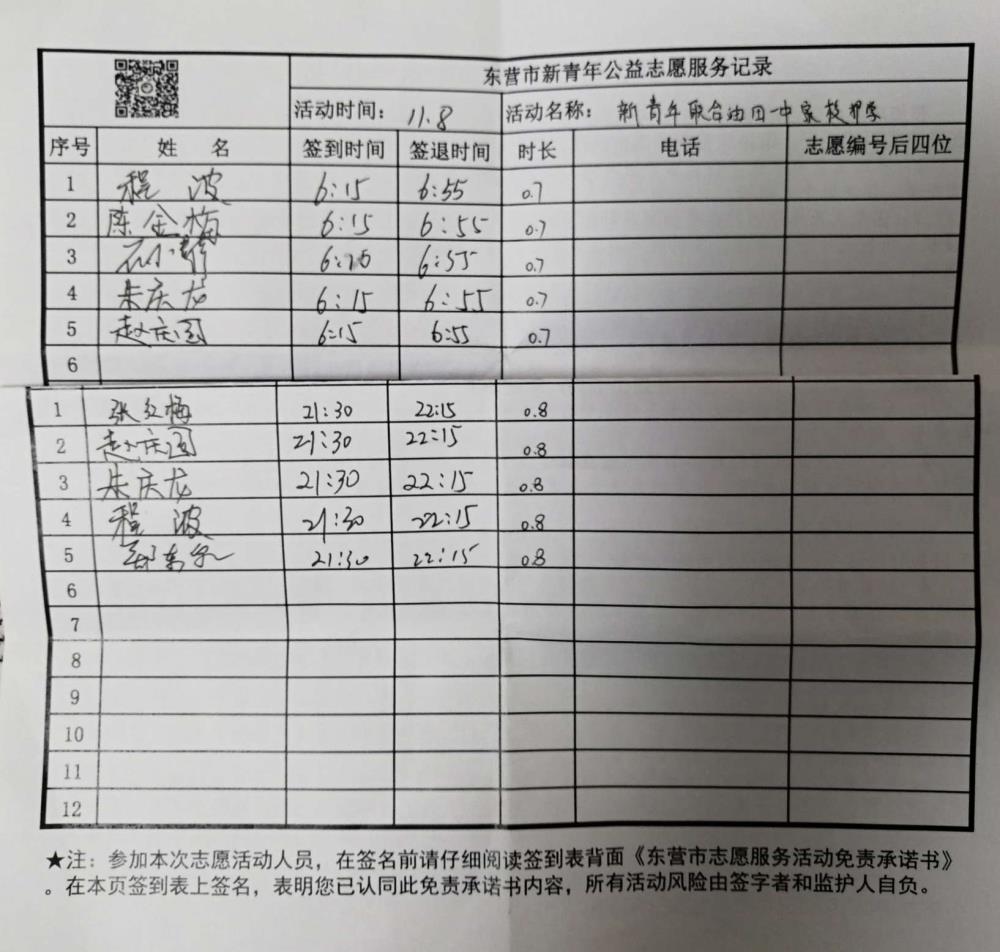 东营市新青年公益志愿服务记录
活动时间： 11.8 活动名称： 新青年联合油田一中家校护学
序号 姓 名 签到时间 签退时间 时长 电话 志愿编号后四位
1 程波 6:15 6:55 0.7
2 陈金梅 6:15 6:55 0.7
3 6:15 6:55 0.7
4 朱庆龙 6:15 6:55 0.7
5 赵庆国 6:15 6:55 0.7
6
1 张红梅 21:30 22:15 0.8
2 赵庆国 21:30 22:15 0.8
3 朱庆龙 21:30 22:15 0.8
4 程波 21:30 22:15 0.8
5 21:30 22:15 0.8
6
7
8
9
10
11
12
★注：参加本次志愿活动人员，在签名前请仔细阅读签到表背面《东营市志愿服务活动免责承诺书》
。在本页签到表上签名，表明您已认同此免责承诺书内容，所有活动风险由签字者和监护人自负。